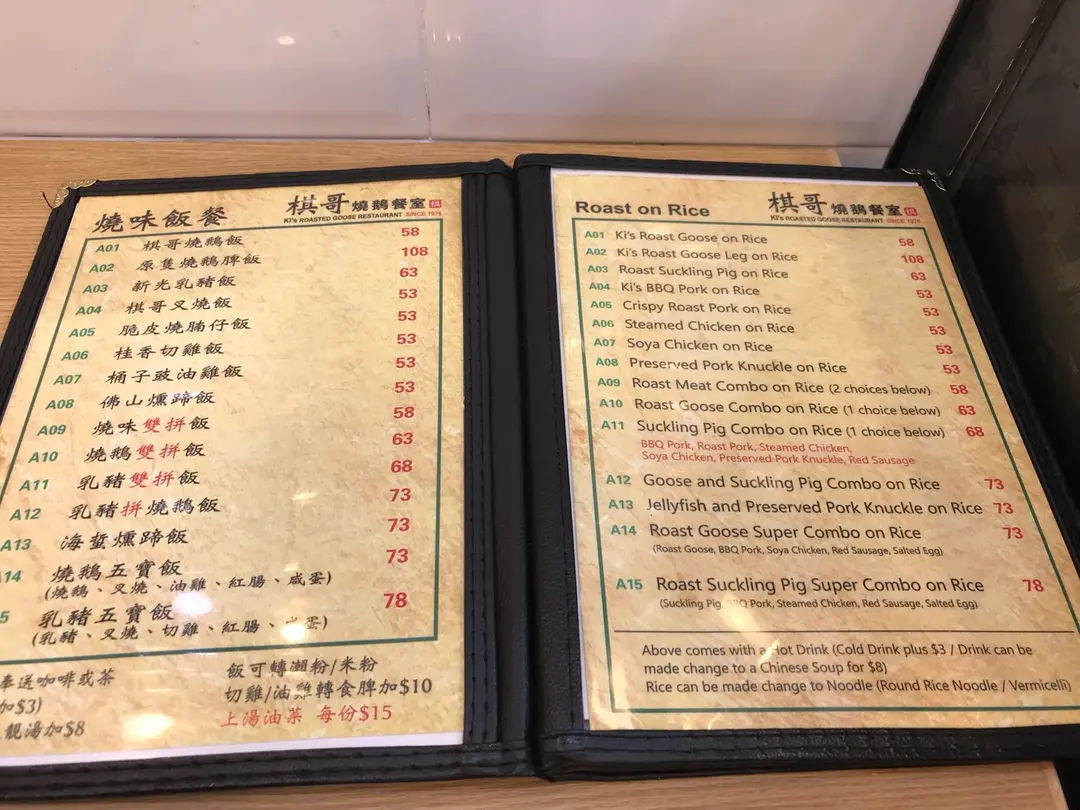 燒味飯餐
棋哥 燒鵝餐室 棋
Ki's ROASTED GOOSE RESTAURANT SINCE 1976
A01 棋哥燒鵝飯 58
A02 原隻燒鵝脾飯 108
A03 新光乳豬飯 63
A04 棋哥叉燒飯 53
A05 脆皮燒腩仔飯 53
A06 桂香切雞飯 53
A07 桶子豉油雞飯 53
A08 佛山燻蹄飯 53
A09 燒味雙拼飯 58
A10 燒鵝雙拼飯 63
A11 乳豬雙拼飯 68
A12 乳豬拼燒鵝飯 73
A13 海蜇燻蹄飯 73
14 燒鵝五寶飯 73
(燒鵝、叉燒、油雞、紅腸、咸蛋)
5 乳豬五寶飯 78
(乳豬、叉燒、切雞、紅腸、咸蛋)
奉送咖啡或茶
加$3)
靚湯加$8
飯可轉瀨粉/米粉
切雞/油雞轉食脾加$10
上湯油菜 每份$15
Roast on Rice
棋哥 燒鵝餐室 棋
Ki's ROASTED GOOSE RESTAURANT SINCE 1976
A01 Ki's Roast Goose on Rice 58
A02 Ki's Roast Goose Leg on Rice 108
A03 Roast Suckling Pig on Rice 63
A04 Ki's BBQ Pork on Rice 53
A05 Crispy Roast Pork on Rice 53
A06 Steamed Chicken on Rice 53
A07 Soya Chicken on Rice 53
A08 Preserved Pork Knuckle on Rice 53
A09 Roast Meat Combo on Rice (2 choices below) 58
A10 Roast Goose Combo on Rice (1 choice below) 63
A11 Suckling Pig Combo on Rice (1 choice below) 68
BBQ Pork, Roast Pork, Steamed Chicken,
Soya Chicken, Preserved Pork Knuckle, Red Sausage
A12 Goose and Suckling Pig Combo on Rice 73
A13 Jellyfish and Preserved Pork Knuckle on Rice 73
A14 Roast Goose Super Combo on Rice 73
(Roast Goose, BBQ Pork, Soya Chicken, Red Sausage, Salted Egg)
A15 Roast Suckling Pig Super Combo on Rice 78
(Suckling Pig, BBQ Pork, Steamed Chicken, Red Sausage, Salted Egg)
Above comes with a Hot Drink (Cold Drink plus $3 / Drink can be
made change to a Chinese Soup for $8)
Rice can be made change to Noodle (Round Rice Noodle / Vermicelli)